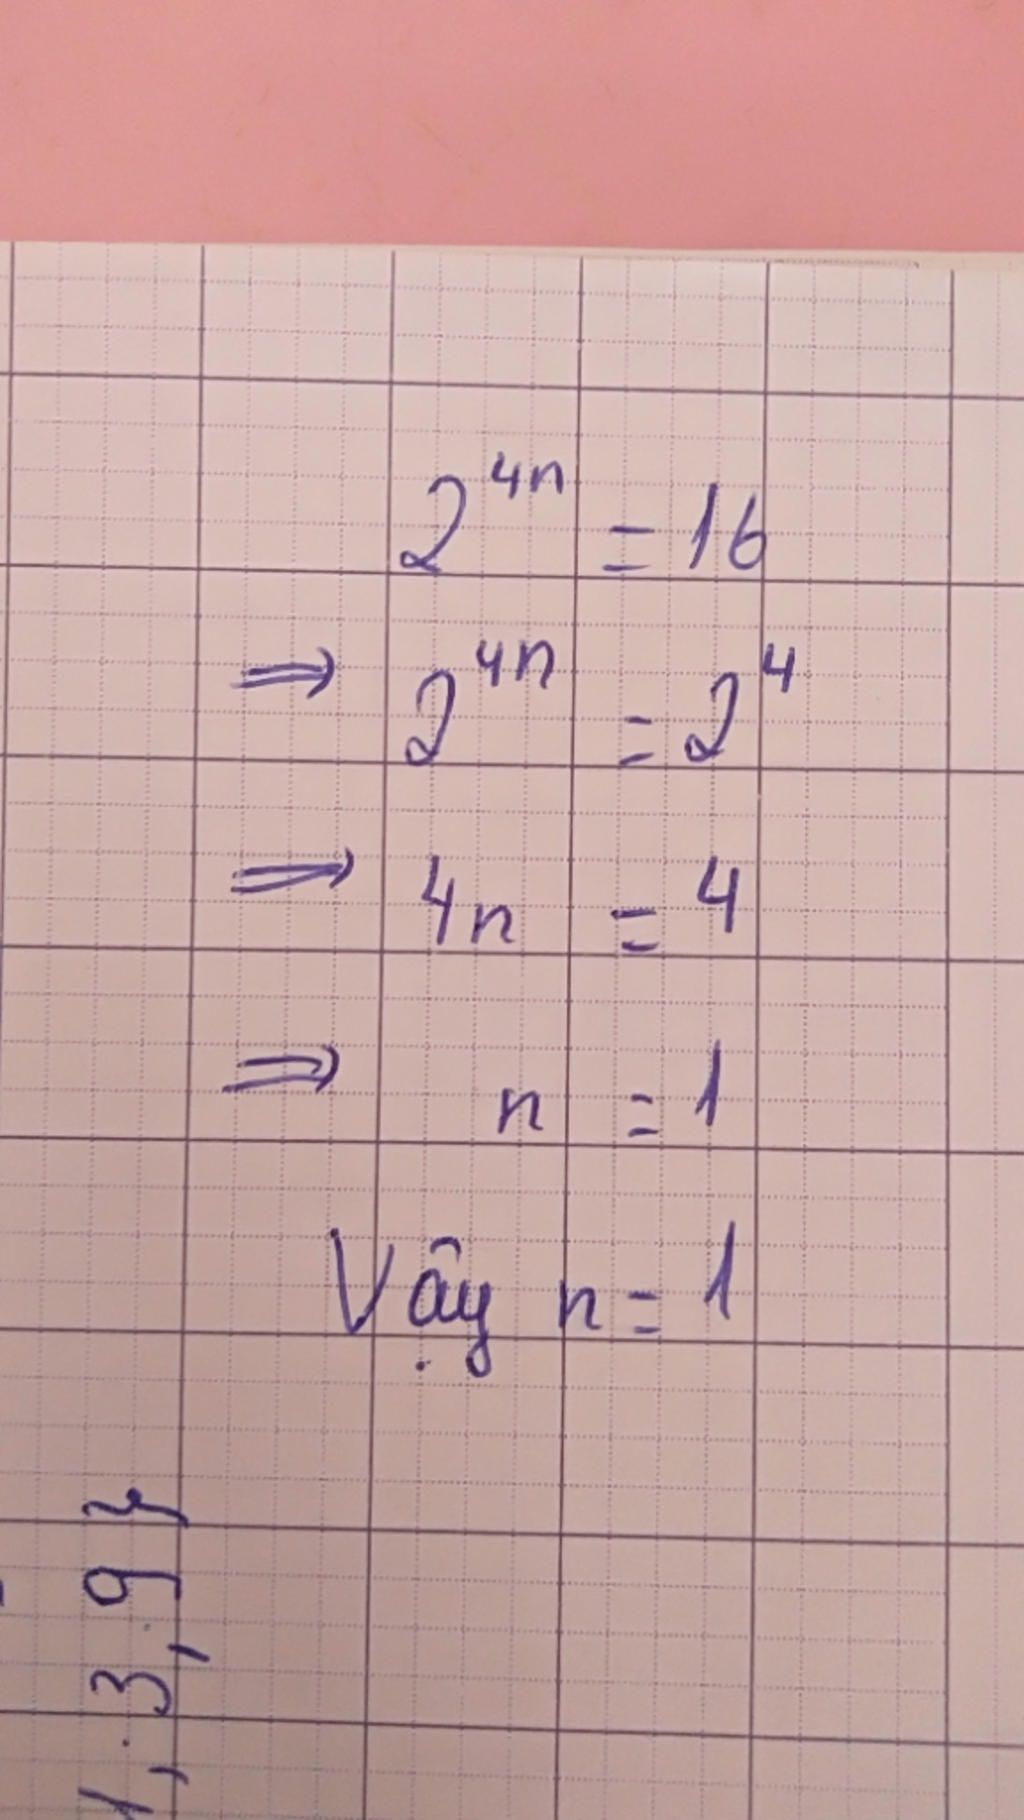 2^{4n} = 16
⇒ 2^{4n} = 2^4
⇒ 4n = 4
⇒ n = 1
Vậy n = 1
1, 3, 9}